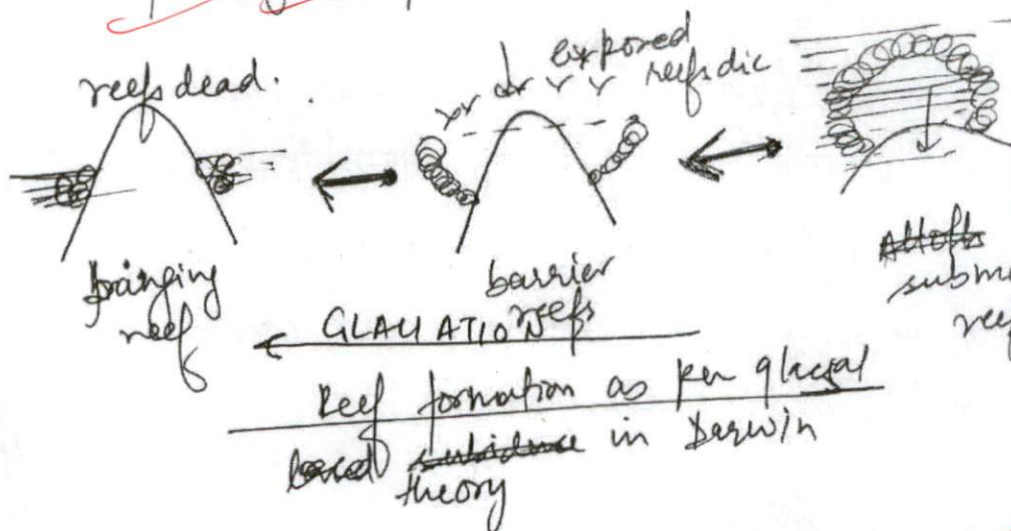 reefs dead.
exposed
reefs die
fringing
reef
barrier
reefs
Attolls
subme
reef
GLACIATION
Reef formation as per glacial
based subsidence in Darwin
theory